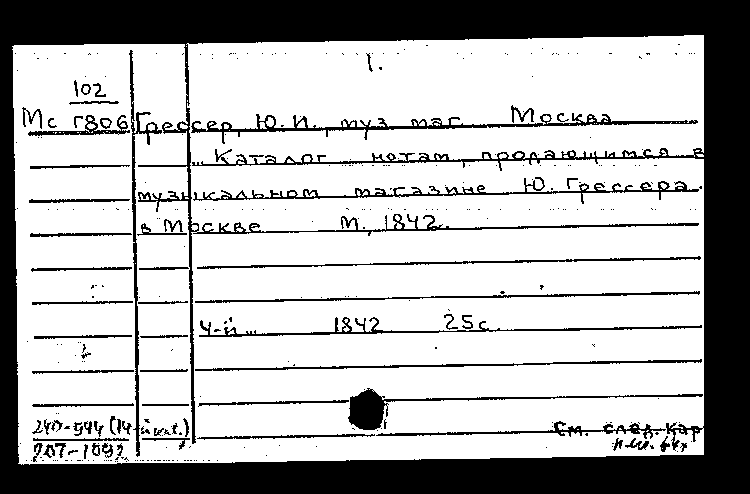 1.
102
Мс Г806 Грессер, Ю.И., муз. маг. Москва
... Каталог нотам, продающимся в
музыкальном магазине Ю. Грессера
в Москве М., 1842.
4-й ... 1842 25с.
240-544 (14-й кат.)
207-1092
См. след. кар